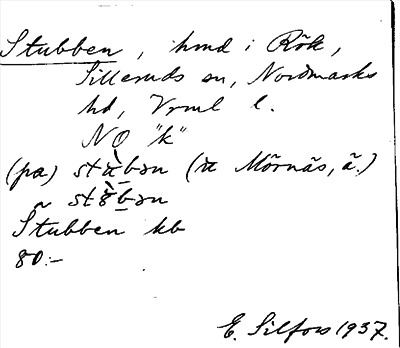 Stubben, hmd i Rök,
Silleruds sn, Nordmarks
hd, Vrml l.
NO "k"
(på) stùbən (Mörnäs, ä.)
Stubben kb
80:-
E. Silfors 1937.